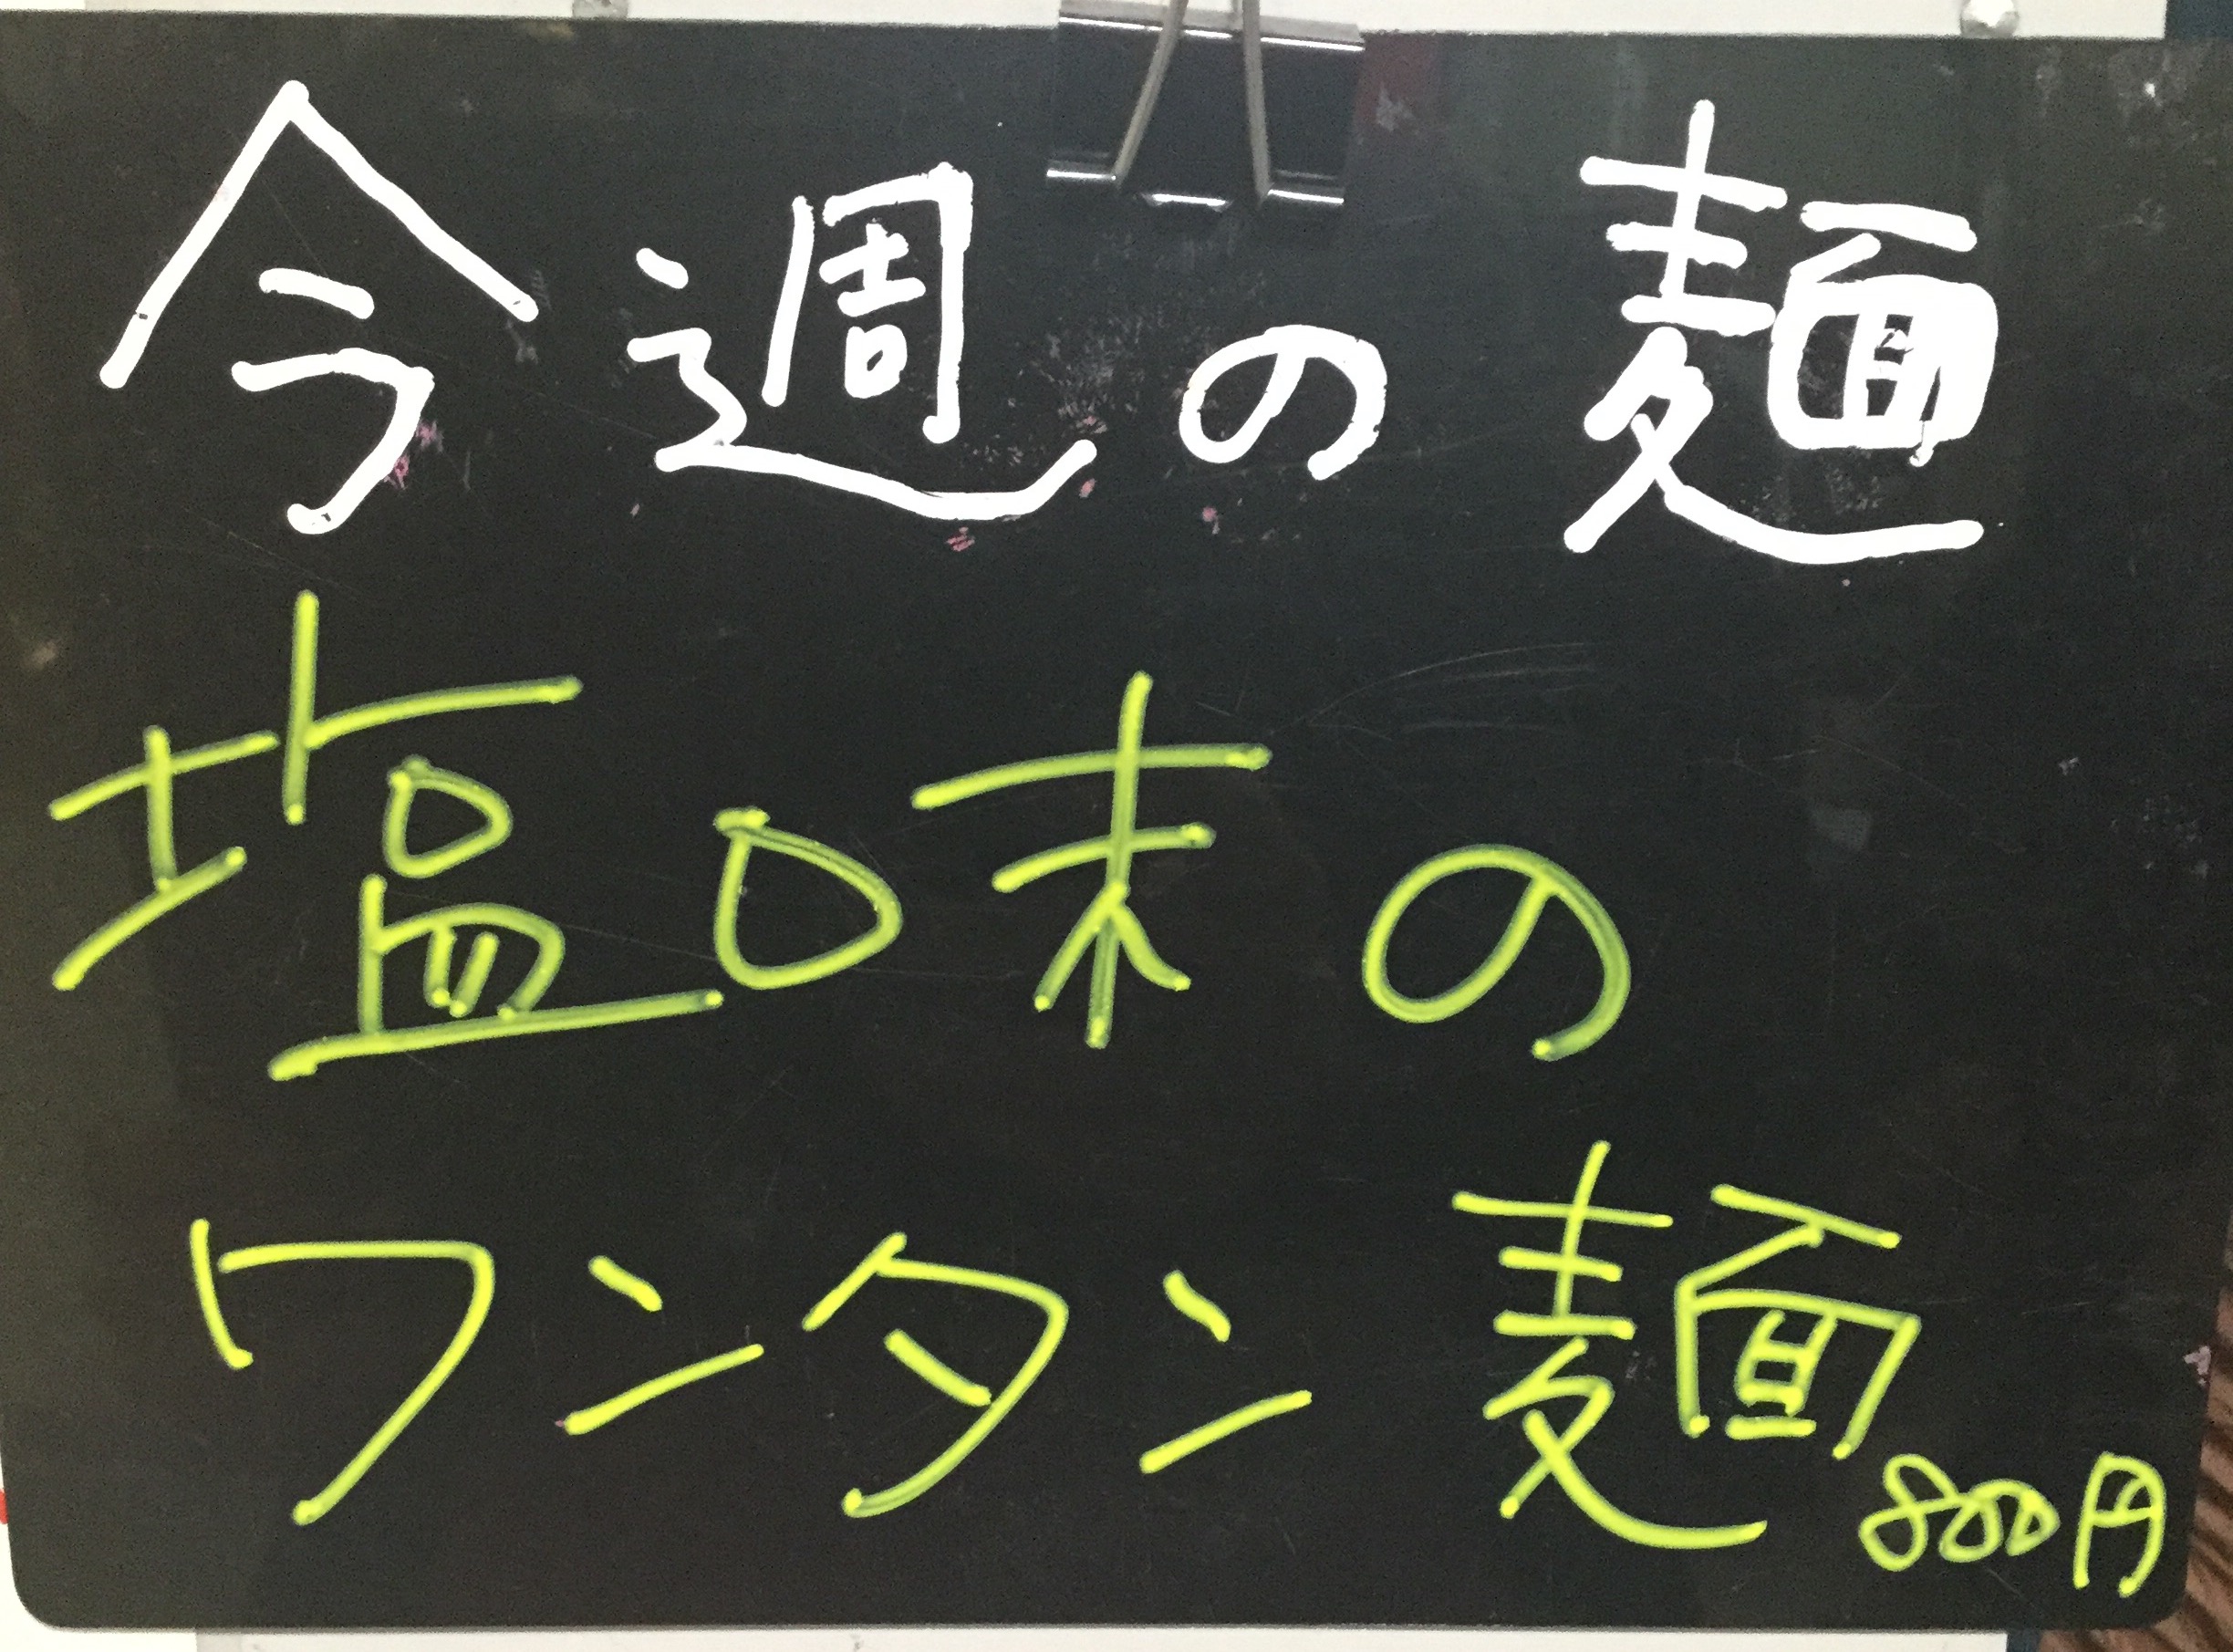 今週の麺
塩味の
ワンタン麺 800円